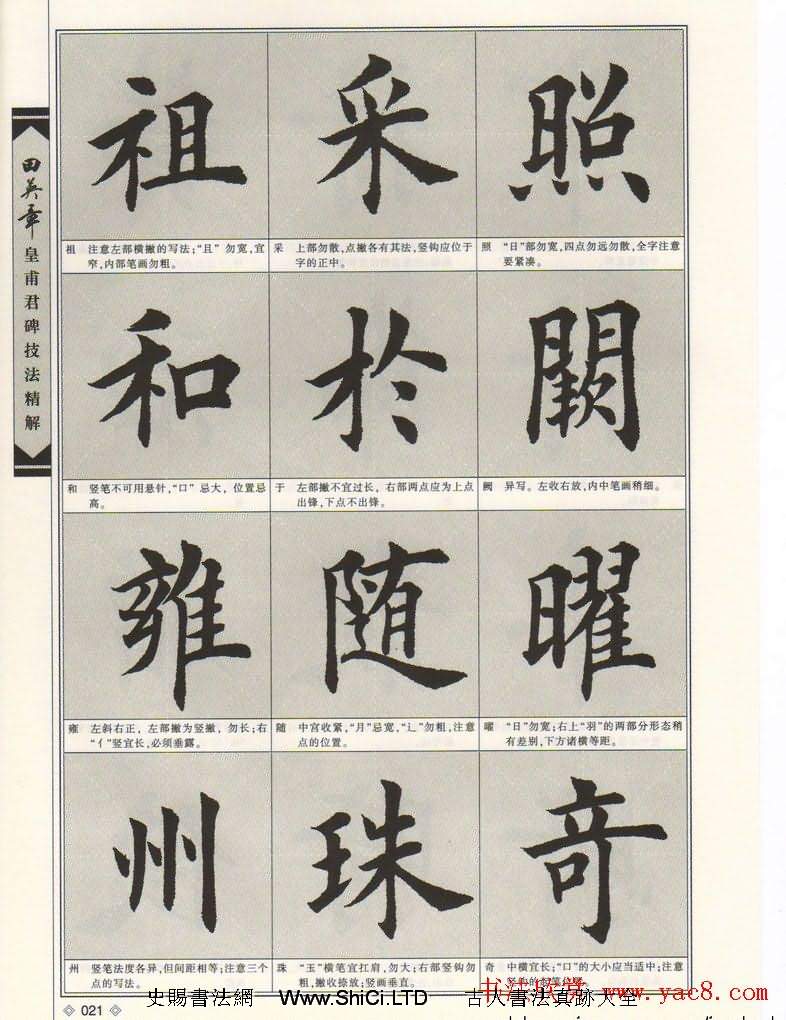 田英章
皇甫君碑技法精解
祖 采 照
祖 注意左部横撇的写法；“且”勿宽，宜
窄，内部笔画勿粗。
采 上部勿散，点撇各有其法，竖钩应位于
字的正中。
照 “日”部勿宽，四点勿远勿散，全字注意
要紧凑。
和 於 阙
和 竖笔不可用悬针，“口”忌大，位置忌
高。
于 左部撇不宜过长，右部两点应为上点
出锋，下点不出锋。
阙 异写。左收右放，内中笔画稍细。
雍 随 曜
雍 左斜右正，左部撇为竖撇，勿长；右
“亻”竖宜长，必须垂露。
随 中宫收紧，“月”忌宽，“辶”勿粗，注意
点的位置。
曜 “日”勿宽；右上“羽”的两部分形态稍
有差别，下方诸横等距。
州 珠 奇
州 竖笔法度各异，但间距相等；注意三个
点的写法。
珠 “玉”横笔宜扛肩，勿大；右部竖钩勿
粗，撇收捺放；竖画垂直。
奇 中横宜长；“口”的大小应当适中；注意
021
史賜書法網 Www.ShiCi.LTD 古人書法真跡大全
书法欣赏 www.yac8.com